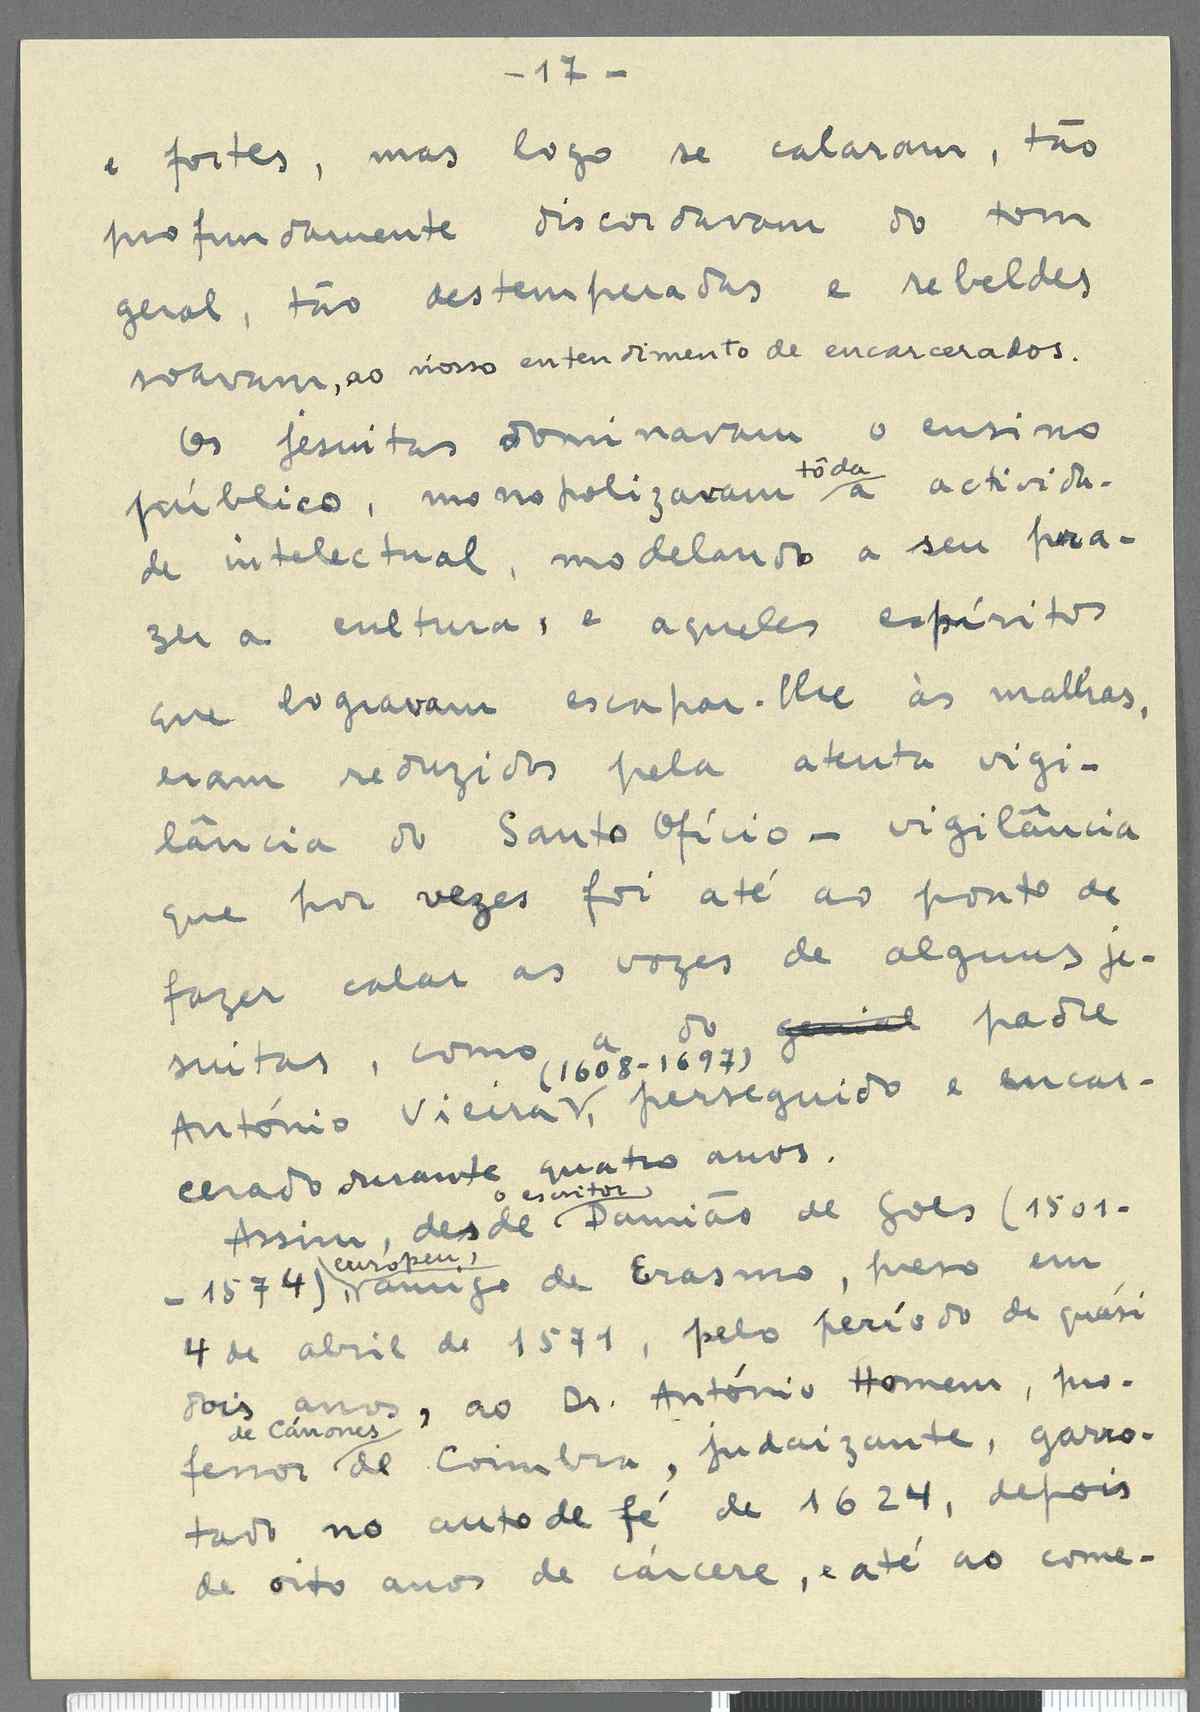 -17-
e fortes, mas logo se calaram, tão
profundamente discordavam do tom
geral, tão destemperadas e rebeldes
soavam, ao nosso entendimento de encarcerados.
Os jesuitas dominavam o ensino
tôda
público, monopolizavam a activida-
de intelectual, modelando a seu pra-
zer a cultura, e aqueles espíritos
que logravam escapar-lhe às malhas,
eram reduzidos pela atenta vigi-
lância do Santo Ofício - vigilância
que por vezes foi até ao ponto de
fazer calar as vozes de alguns je-
suitas, como a do genial padre
(1608-1697)
António Vieira, perseguido e encar-
cerado durante quatro anos.
o escritor
Assim, desde Damião de Goes (1501-
europeu,
-1574), amigo de Erasmo, preso em
4 de abril de 1571, pelo período de quási
dois anos, ao Dr. António Homem, pro-
de Cánones
fessor de Coimbra, judaizante, garro-
tado no auto de fé de 1624, depois
de oito anos de cárcere, e até ao come-